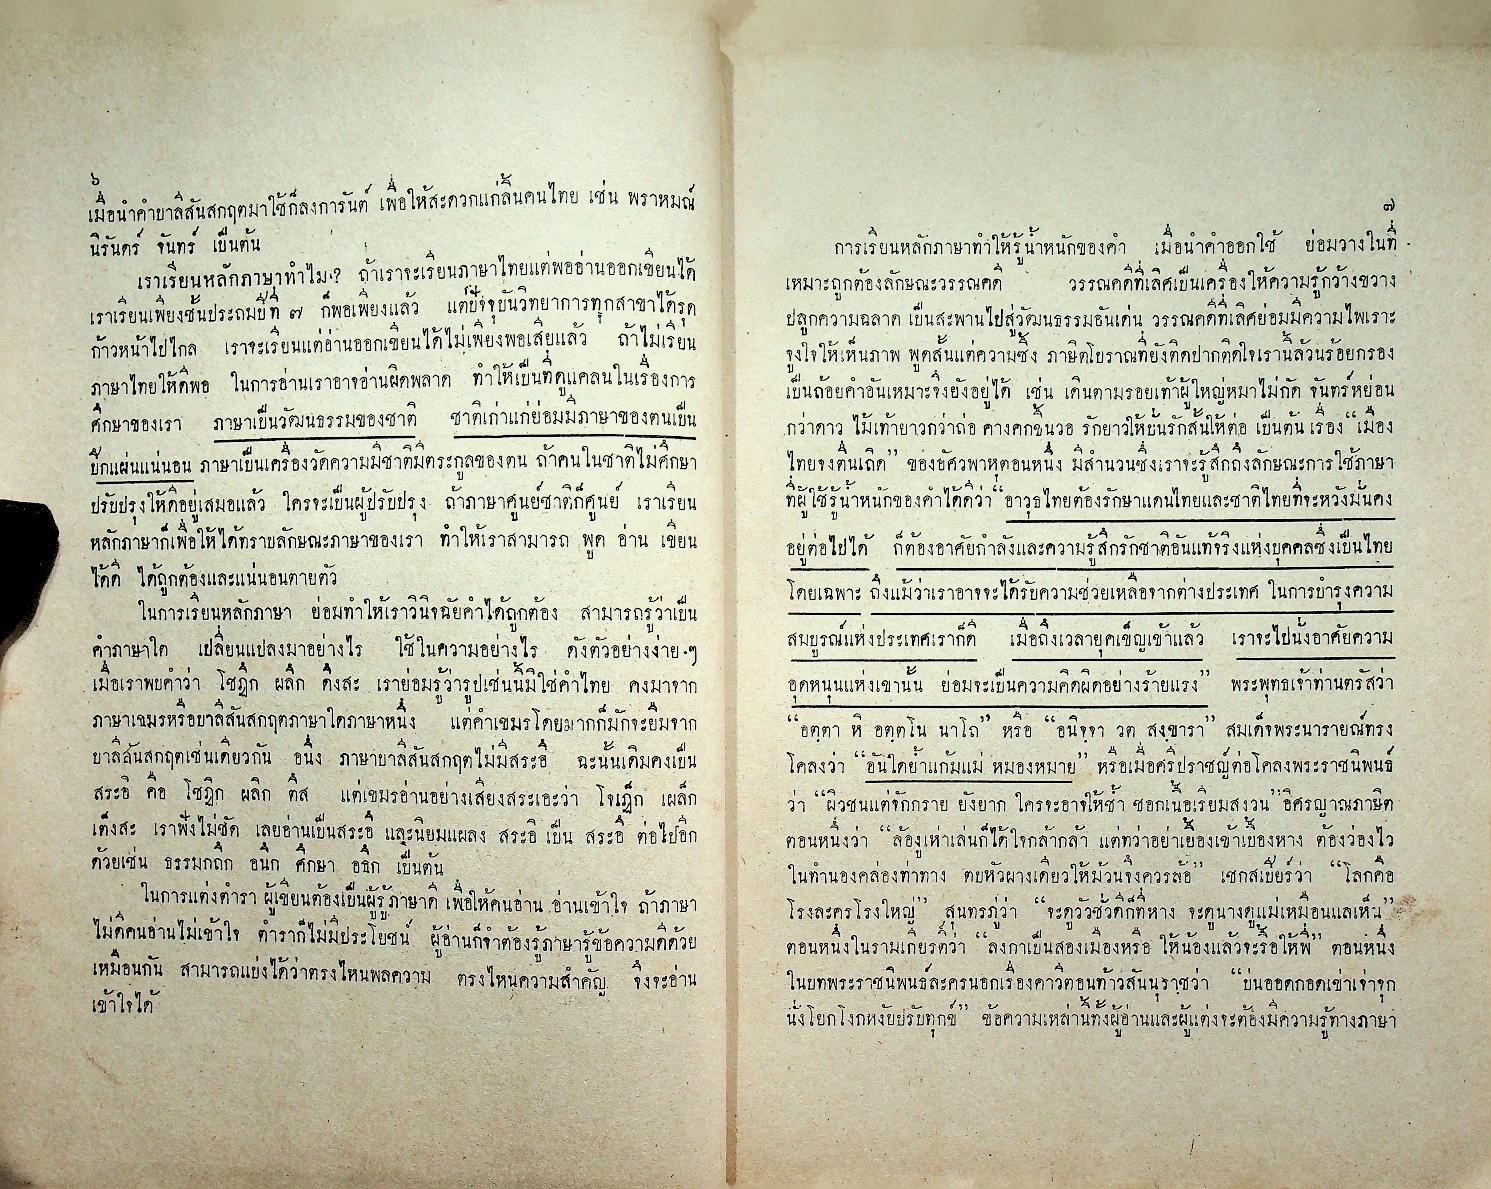 ๖
เมื่อนำคำบาลีสันสกฤตมาใช้ก็ลงการันต์ เพื่อให้สะดวกแก่ลิ้นคนไทย เช่น พราหมณ์
นิรันดร์ จันทร์ เป็นต้น
เราเรียนหลักภาษาทำไม ? ถ้าเราจะเรียนภาษาไทยแต่พออ่านออกเขียนได้
เราเรียนเพียงชั้นประถมปีที่ ๗ ก็พอเพียงแล้ว แต่ปัจจุบันวิทยาการทุกสาขาได้รุด
ก้าวหน้าไปไกล เราจะเรียนแต่อ่านออกเขียนได้ไม่เพียงพอเสียแล้ว ถ้าไม่เรียน
ภาษาไทยให้ดีพอ ในการอ่านเราอาจอ่านผิดพลาด ทำให้เป็นที่ดูแคลนในเรื่องการ
ศึกษาของเรา ภาษาเป็นวัฒนธรรมของชาติ ชาติเก่าแก่ย่อมมีภาษาของตนเป็น
ปึกแผ่นแน่นอน ภาษาเป็นเครื่องวัดความมีชาติมีตระกูลของตน ถ้าคนในชาติไม่ศึกษา
ปรับปรุงให้ดีอยู่เสมอแล้ว ใครจะเป็นผู้ปรับปรุง ถ้าภาษาศูนย์ชาติก็ศูนย์ เราเรียน
หลักภาษาก็เพื่อให้ได้ทราบลักษณะภาษาของเรา ทำให้เราสามารถ พูด อ่าน เขียน
ได้ดี ได้ถูกต้องและแน่นอนตายตัว
ในการเรียนหลักภาษา ย่อมทำให้เราวินิจฉัยคำได้ถูกต้อง สามารถรู้ว่าเป็น
คำภาษาใด เปลี่ยนแปลงมาอย่างไร ใช้ในความอย่างไร ดังตัวอย่างง่าย ๆ
เมื่อเราพบคำว่า โชฎึก ผลึก ดึงสะ เราย่อมรู้ว่ารูปเช่นนี้มิใช่คำไทย คงมาจาก
ภาษาเขมรหรือบาลีสันสกฤตภาษาใดภาษาหนึ่ง แต่คำเขมรโดยมากก็มักจะยืมจาก
บาลีสันสกฤตเช่นเดียวกัน อนึ่ง ภาษาบาลีสันสกฤตไม่มีสระอึ ฉะนั้นเดิมคงเป็น
สระอิ คือ โชฎิก ผลิก ติส แต่เขมรอ่านออกเสียงสระเอะว่า โจเฎ็ก เผล็ก
เต็งสะ เราฟังไม่ชัด เลยอ่านเป็นสระอึ และนิยมแผลง สระอิ เป็น สระอึ ต่อไปอีก
ด้วยเช่น ธรรมกถึก อนึก ศึกษา อธึก เป็นต้น
ในการแต่งตำรา ผู้เขียนต้องเป็นผู้รู้ภาษาดี เพื่อให้คนอ่าน อ่านเข้าใจ ถ้าภาษา
ไม่ดีคนอ่านไม่เข้าใจ ตำราก็ไม่มีประโยชน์ ผู้อ่านก็จำต้องรู้ภาษารู้ข้อความดีด้วย
เหมือนกัน สามารถแบ่งได้ว่าตรงไหนพลความ ตรงไหนความสำคัญ จึงจะอ่าน
เข้าใจได้
๗
การเรียนหลักภาษาทำให้รู้น้ำหนักของคำ เมื่อนำคำออกใช้ ย่อมวางในที่
เหมาะถูกต้องลักษณะวรรณคดี วรรณคดีที่เลิศเป็นเครื่องให้ความรู้กว้างขวาง
ปลูกความฉลาด เป็นสะพานไปสู่วัฒนธรรมอันเด่น วรรณคดีที่เลิศย่อมมีความไพเราะ
จูงใจให้เห็นภาพ พูดสั้นแต่ความซึ้ง ภาษิตโบราณที่ยังติดปากติดใจเรานี้ล้วนร้อยกรอง
เป็นถ้อยคำอันเหมาะจึงยังอยู่ได้ เช่น เดินตามรอยเท้าผู้ใหญ่หมาไม่กัด จันทร์หย่อน
กว่าดาว ไม้เท้ายาวกว่าถ่อ คางคกขึ้นวอ รักยาวให้บั่นรักสั้นให้ต่อ เป็นต้น เรื่อง “เมือง
ไทยจงตื่นเถิด” ของอัศวพาหุตอนหนึ่ง มีสำนวนซึ่งเราจะรู้สึกถึงลักษณะการใช้ภาษา
ที่ผู้ใช้รู้น้ำหนักของคำได้ดีว่า “อาวุธไทยต้องรักษาแดนไทยและชาติไทยที่จะหวังมั่นคง
อยู่ต่อไปได้ ก็ต้องอาศัยกำลังและความรู้สึกรักชาติอันแท้จริงแห่งบุคคลซึ่งเป็นไทย
โดยเฉพาะ ถึงแม้ว่าเราอาจจะได้รับความช่วยเหลือจากต่างประเทศ ในการบำรุงความ
สมบูรณ์แห่งประเทศเราก็ดี เมื่อถึงเวลายุคเข็ญเข้าแล้ว เราจะไปนั่งอาศัยความ
อุดหนุนแห่งเขานั้น ย่อมจะเป็นความคิดผิดอย่างร้ายแรง” พระพุทธเจ้าท่านตรัสว่า
“อตฺตา หิ อตฺตโน นาโถ” หรือ “อนิจฺจา วต สงฺขารา” สมเด็จพระนารายณ์ทรง
โคลงว่า “อันใดย้ำแก้มแม่ หมองหมาย” หรือเมื่อศรีปราชญ์ต่อโคลงพระราชนิพนธ์
ว่า “ผิวชนแต่จักกราย ยังยาก ใครจะอาจให้ช้ำ ชอกเนื้อเรียมสงวน” อิศรญาณภาษิต
ตอนหนึ่งว่า “ล้องูเห่าเล่นก็ได้ใจกล้ากล้า แต่ทว่าอย่าเยื้องเข้าเบื้องหาง ต้องว่องไว
ในทำนองคล่องท่าทาง ตบหัวผางเดียวให้ม้วนจึงควรล้อ” เชกสเปียร์ว่า “โลกคือ
โรงละครโรงใหญ่” สุนทรภู่ว่า “จะดูวัวชั่วดีก็ที่หาง จะดูนางดูแม่เหมือนแลเห็น”
ตอนหนึ่งในรามเกียรติ์ว่า “ลงกาเป็นสองเมืองหรือ ให้น้องแล้วจะรื้อให้พี่” ตอนหนึ่ง
ในบทพระราชนิพนธ์ละครนอกเรื่องคาวีตอนท้าวสันนุราชว่า “บ่นออดกอดเข่าเจ่าจุก
นั่งโยกโงกหงับปรับทุกข์” ข้อความเหล่านี้ทั้งผู้อ่านและผู้แต่งจะต้องมีความรู้ทางภาษา